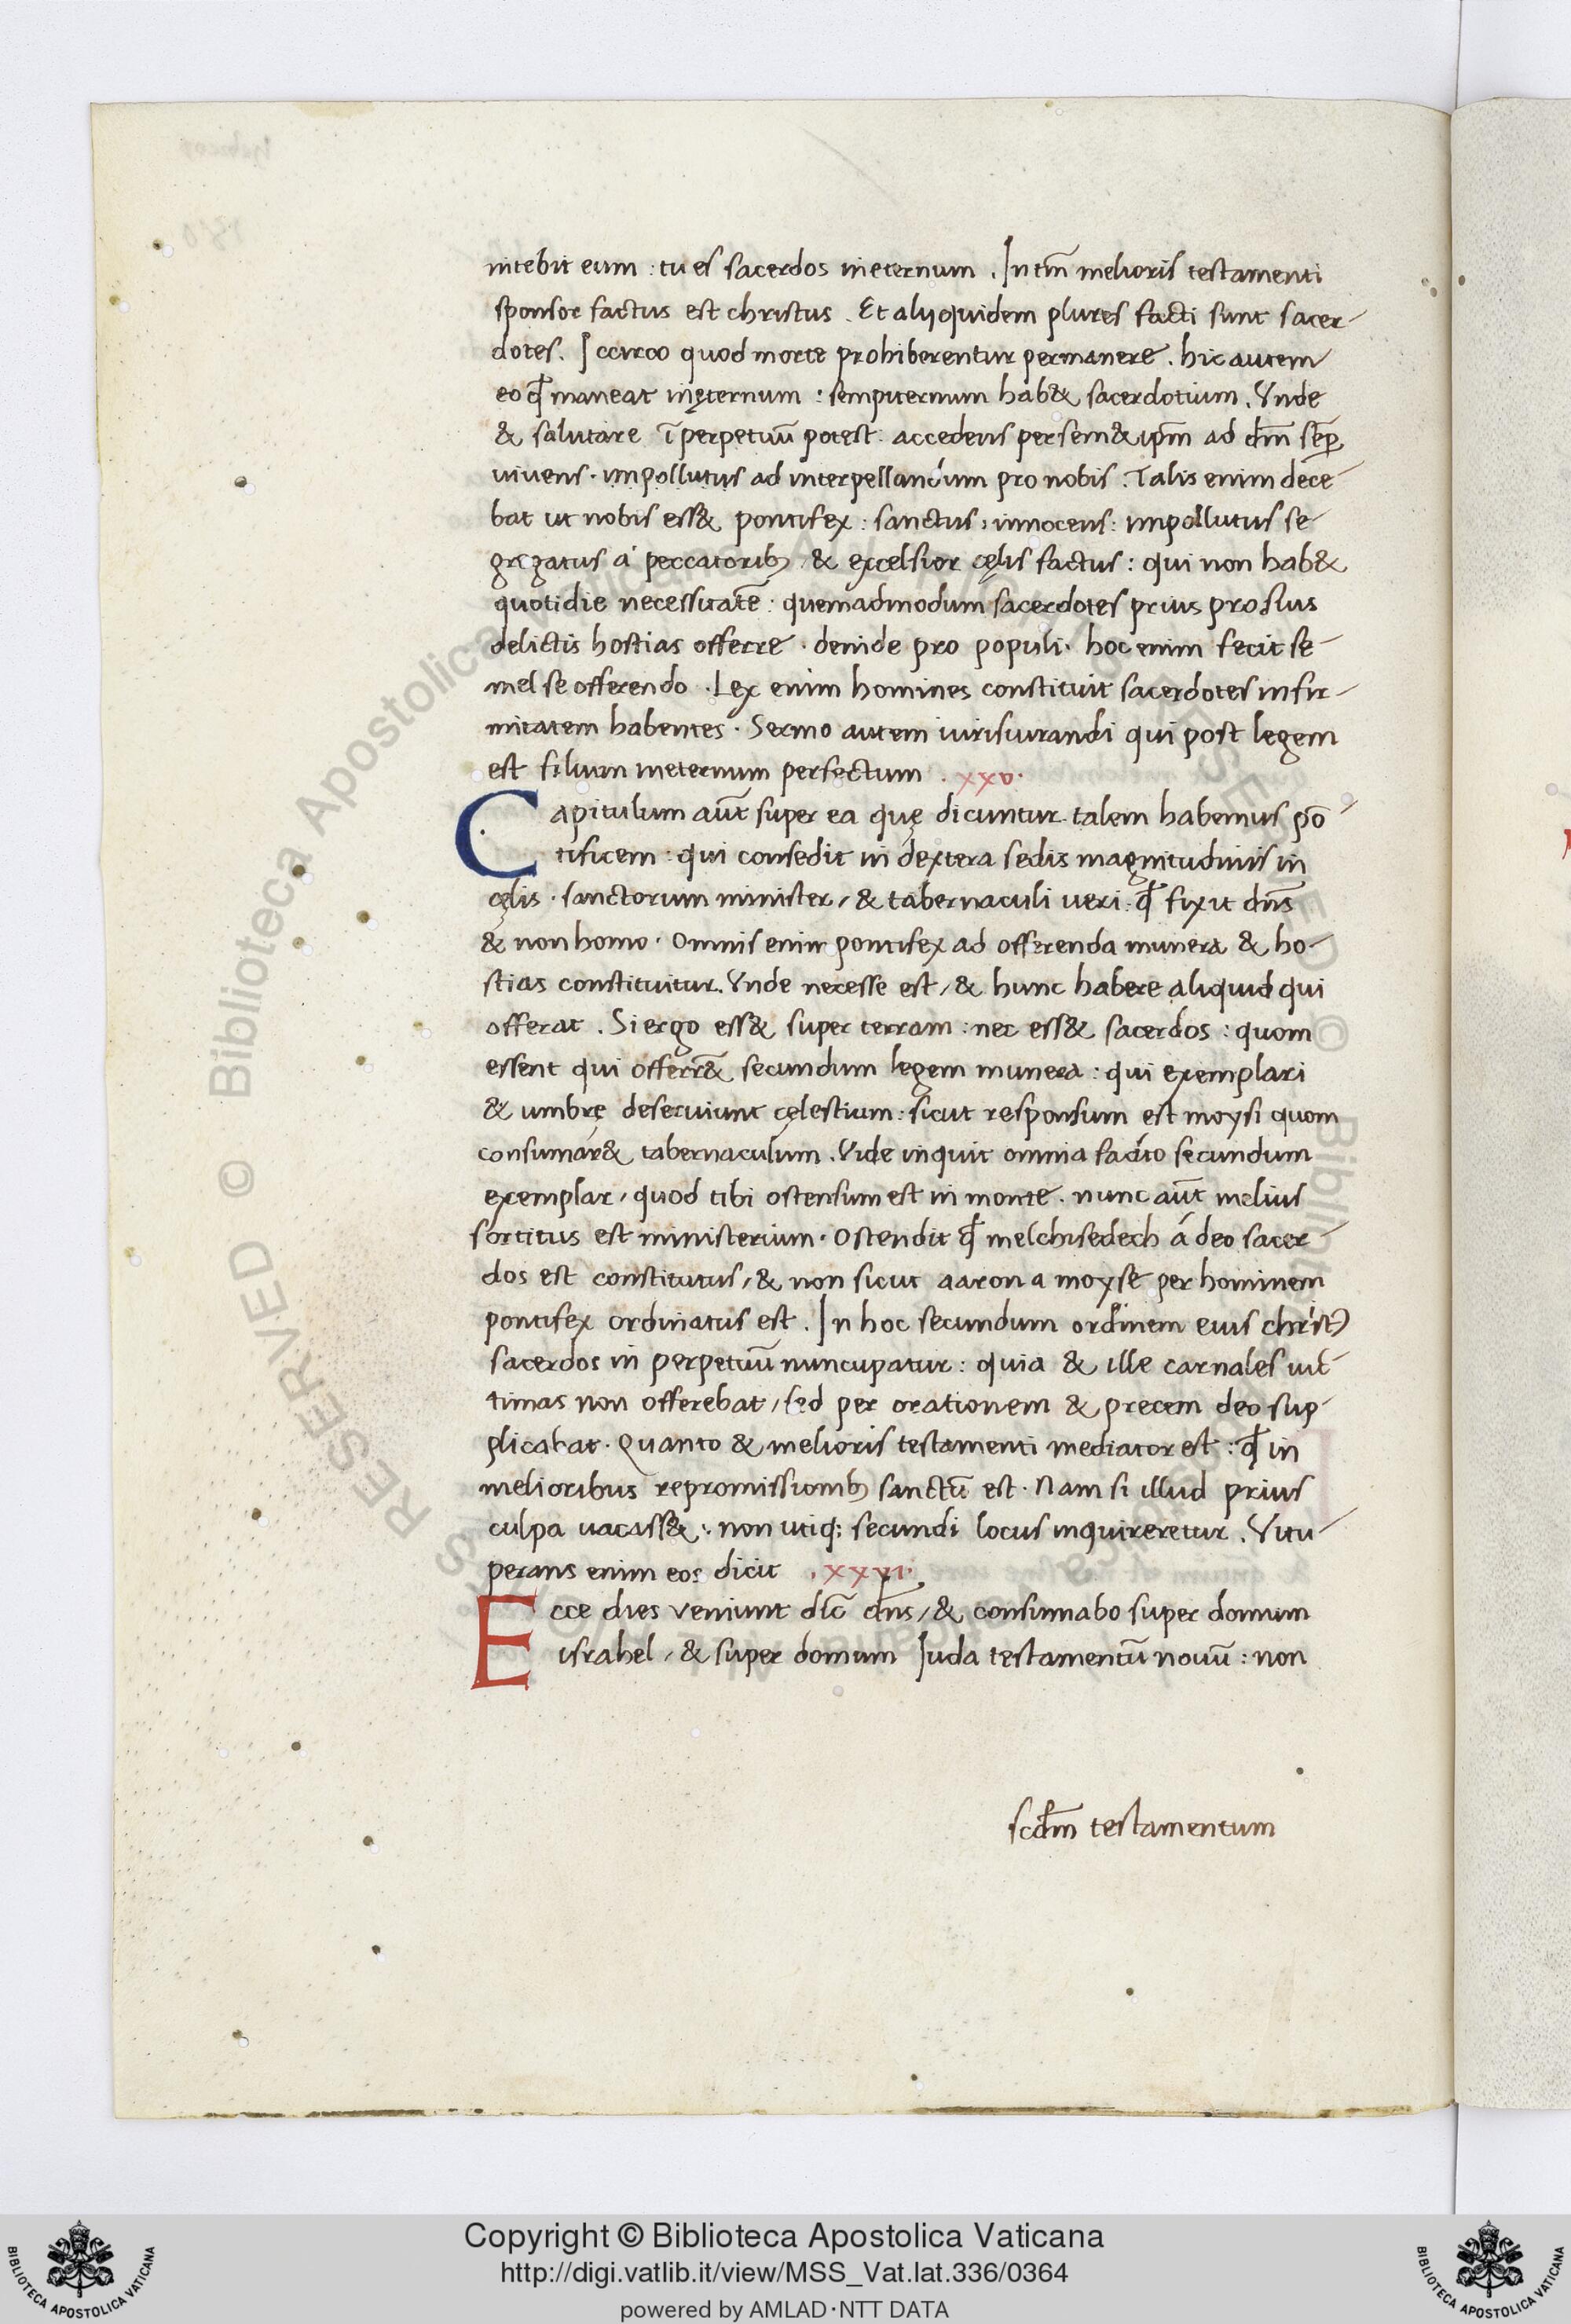 nitebit eum : tu es sacerdos ineternum . In tm̄ melioris testamenti
sponsor factus est christus . Et alij quidem plures facti sunt sacer-
dotes. Iccirco quod morte prohiberentur permanere . hic autem
eo ꝙ maneat inęternum : sempiternum hab& sacerdotium. Vnde
& salutare ī perpetuū potest : accedens per sem&ip̄m ad dm̄ semꝑ
uiuens · impollutus ad interpellandum pro nobis . Talis enim dece-
bat ut nobis ess& pontifex : sanctus : innocens : impollutus se-
gregatus á peccatorib; & excelsior cęlis factus : qui non hab&
quotidie necessitatē : quemadmodum sacerdotes prius pro suis
delictis hostias offerre · deinde pro populi · hoc enim fecit se-
mel se offerendo . Lex enim homines constituit sacerdotes infir-
mitatem habentes · Sermo autem iurisiurandi qui post legem
est filium ineternum perfectum . xxv.
Capitulum aūt super ea quę dicuntur talem habemus pō-
tificem : qui consedit in dextera sedis magnitudinis in
cęlis · sanctorum minister, & tabernaculi ueri : ꝙ fixit dn̄s
& non homo · Omnis enim pontifex ad offerenda munera & ho-
stias constituitur. Vnde necesse est, & hunc habere aliquid qui
offerat . Si ergo ess& super terram : nec ess& sacerdos : quom
essent qui offerr̄& secundum legem munera : qui exemplari
& umbrę deseruiunt cęlestium : sicut responsum est moysi quom
consumar& tabernaculum . Vide inquit omnia facito secundum
exemplar, quod tibi ostensum est in monte . nunc aūt melius
sortitus est ministerium · Ostendit ꝙ melchisedech á deo sacer-
dos est constitutus, & non sicut aaron a moyse per hominem
pontifex ordinatus est . In hoc secundum ordinem eius christ9
sacerdos in perpetuū nuncupatur : quia & ille carnales uic-
timas non offerebat, sed per orationem & precem deo sup-
plicabat · Quanto & melioris testamenti mediator est : ꝙ in
melioribus repromissionib; sanctū est · Nam si illud prius
culpa uacass& : non utiq; secundi locus inquireretur . Vitu-
perans enim eos dicit . xxvi.
Ecce dies veniunt dic̄ dn̄s, & consumabo super domum
israhel, & super domum Iuda testamentū nouū : non
scd̄m testamentum
Copyright © Biblioteca Apostolica Vaticana
http://digi.vatlib.it/view/MSS_Vat.lat.336/0364
powered by AMLAD·NTT DATA